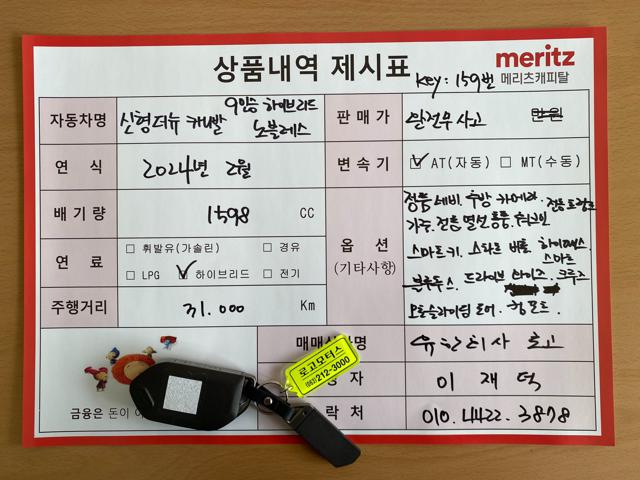 상품내역 제시표
meritz
메리츠캐피탈
key: 159번
자동차명
신형더뉴 카니발 9인승 하이브리드
노블레스
판매가
완전무사고
만원
연 식
2024년 2월
변속기
AT(자동) MT(수동)
배기량
1598 CC
옵 션
(기타사항)
정품네비. 후방카메라. 전동트렁크
가죽. 전동 열선통풍
스마트키. 스타트버튼. 하이패스.
블루투스. 드라이브와이즈. 스마트크루즈
오토슬라이딩도어.
연 료
휘발유(가솔린) 경유
LPG 하이브리드 전기
주행거리
31.000 Km
매매
명
유한회사 로고
자
이재덕
락처
010.4422.3878
금융은 돈이
로고모터스
(063)212-3000